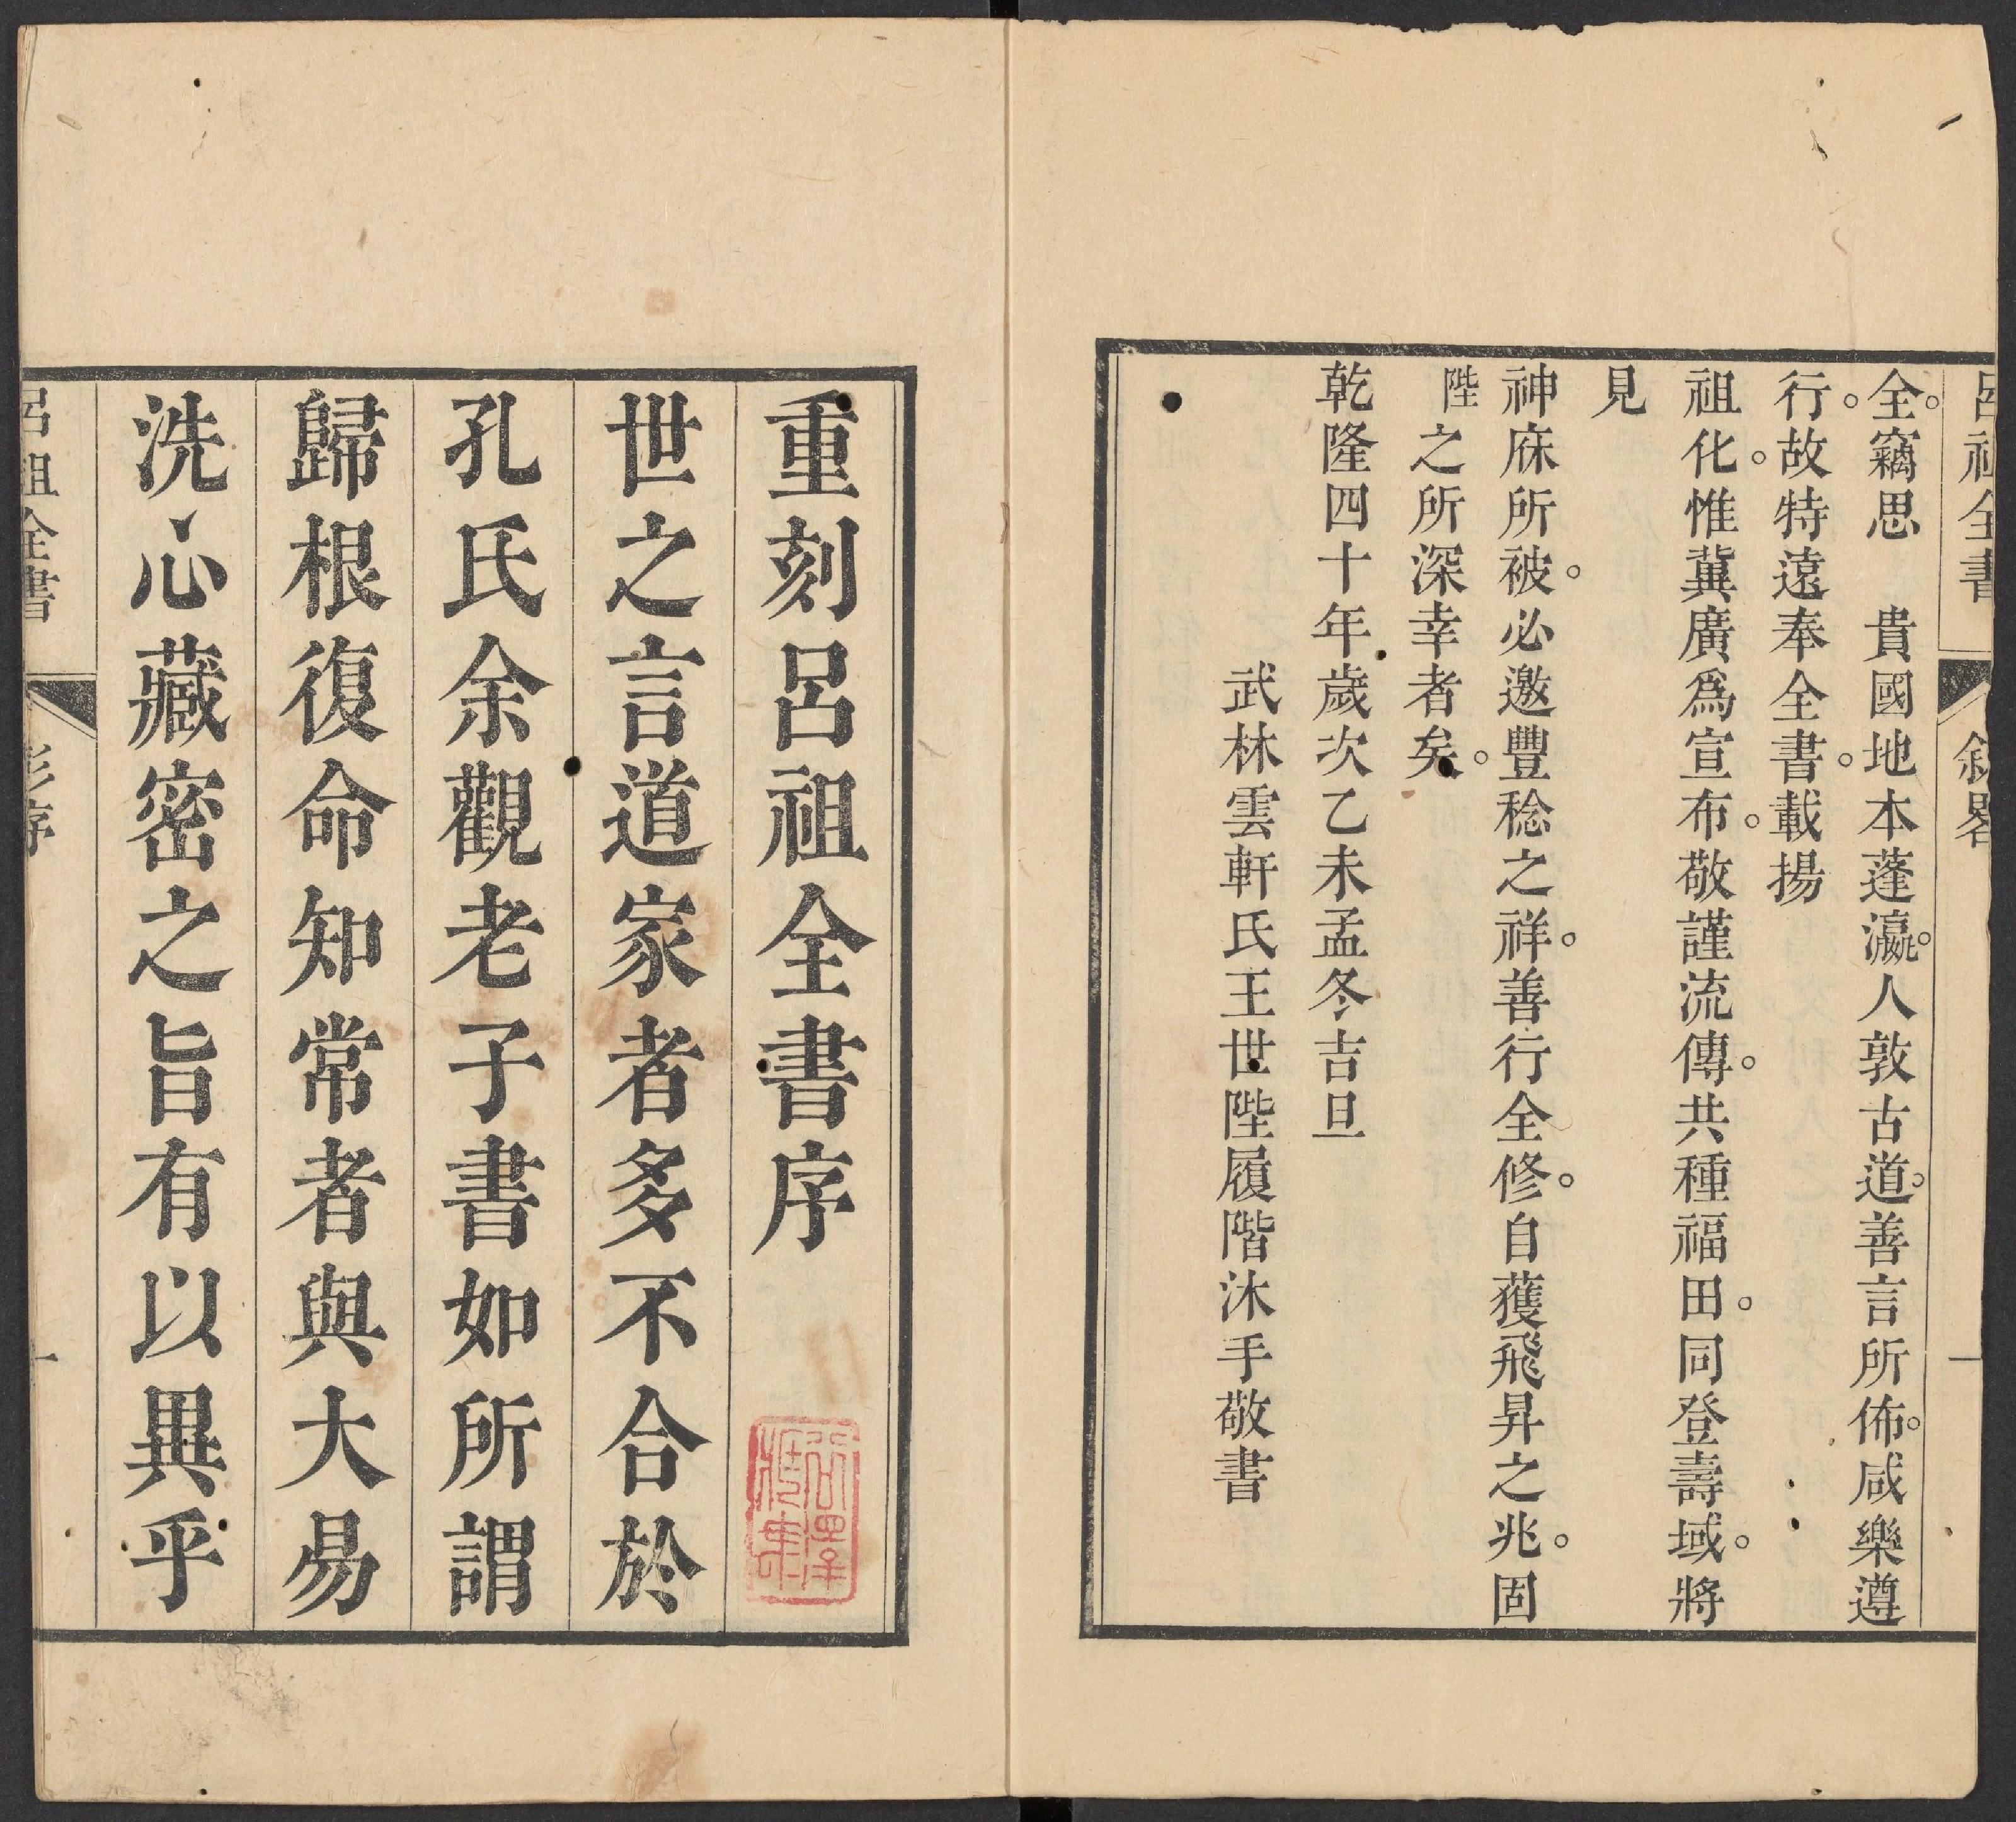 呂祖全書 敘畧 一
全。竊思　貴國地本蓬瀛。人敦古道。善言所佈。咸樂遵
行。故特遠奉全書。載揚
祖化。惟冀廣爲宣布。敬謹流傳。共種福田。同登壽域。將
見
神庥所被。必邀豐稔之祥。善行全修。自獲飛昇之兆。固
陛之所深幸者矣。
乾隆四十年歲次乙未孟冬吉旦
武林雲軒氏王世陛履階沐手敬書
重刻呂祖全書序
世之言道家者多不合於
孔氏余觀老子書如所謂
歸根復命知常者與大易
洗心藏密之旨有以異乎
呂祖全書 彭序 一